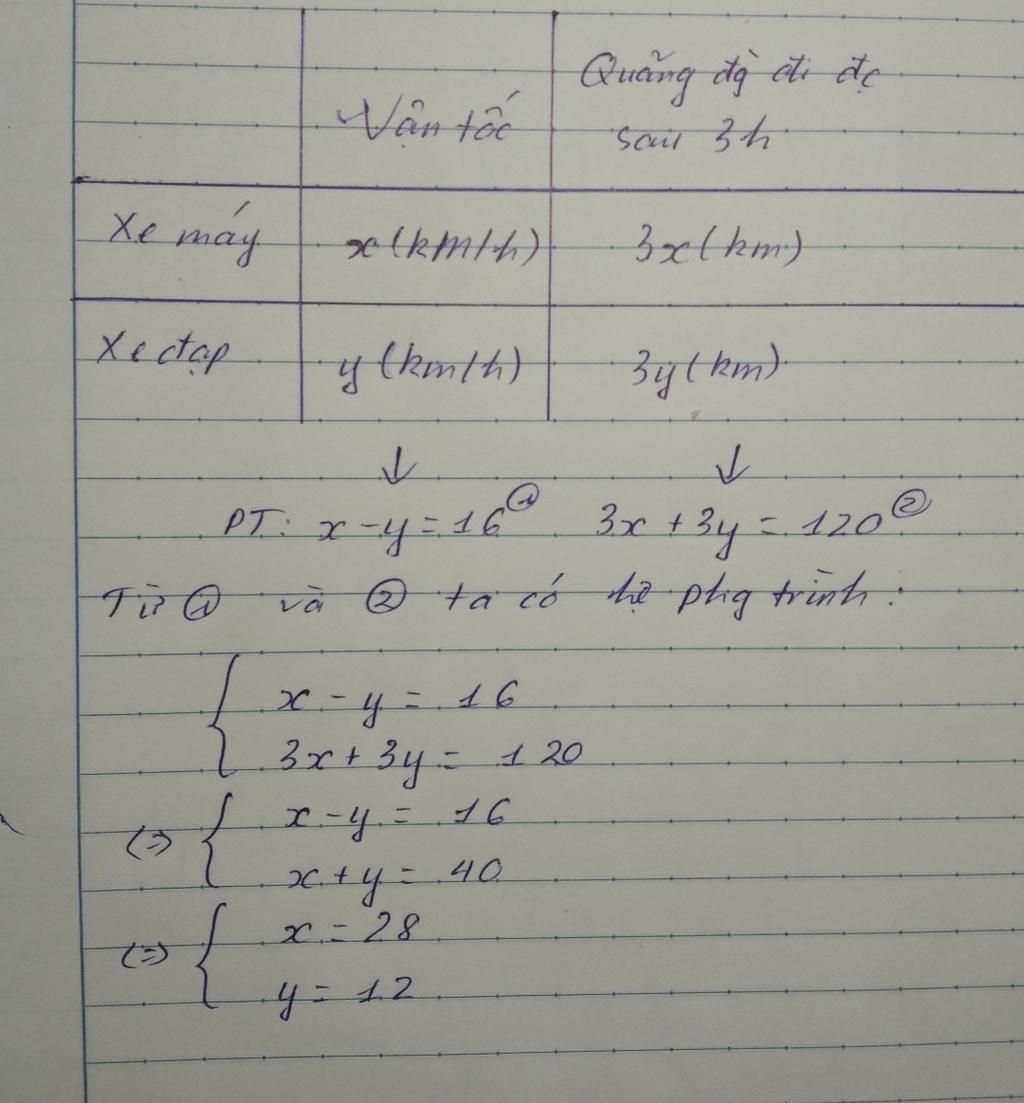 Quãng đg đi đc
Vận tốc
sau 3h
Xe máy x(km/h) 3x(km)
Xe đạp y(km/h) 3y(km)
↓ ↓
PT: x - y = 16 ① 3x + 3y = 120 ②
Từ ① và ② ta có hệ phg trình:
x - y = 16
3x + 3y = 120
(=) x - y = 16
x + y = 40
(=) x = 28
y = 12